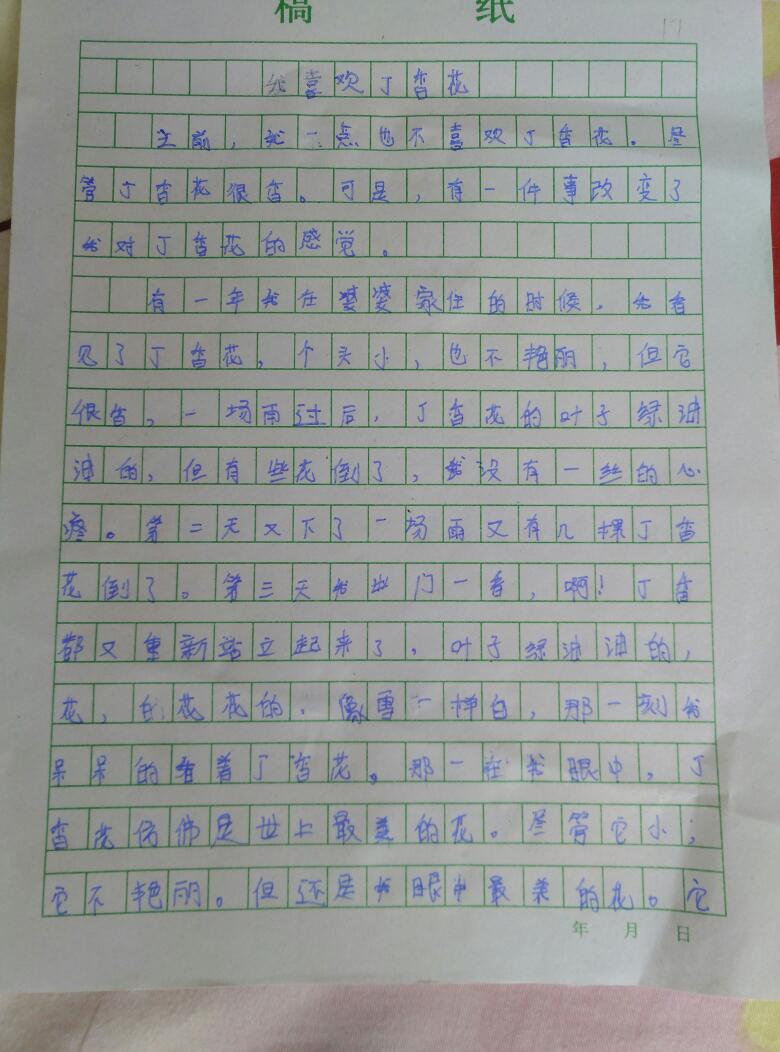 稿 纸
17
我喜欢丁香花
前，我一点也不喜欢丁香花。尽
管丁香花很香。可是，有一件事改变了
我对丁香花的感觉。
有一年我在婆婆家住的时候，我看
见了丁香花，个头小，也不艳丽，但它
很香，一场雨过后，丁香花的叶子绿油
油的，但有些花倒了，我没有一丝的心
疼。第二天又下了一场雨又有几棵丁香
花倒了。第三天我出门一看，啊！丁香
都又重新站立起来了，叶子绿油油的，
花，的花花的，像雪一样白，那一刻我
呆呆的看着丁香花。那一在我眼中，丁
香花仿佛是世上最美的花。尽管它小；
它不艳丽。但还是我眼中最美的花。它
年 月 日